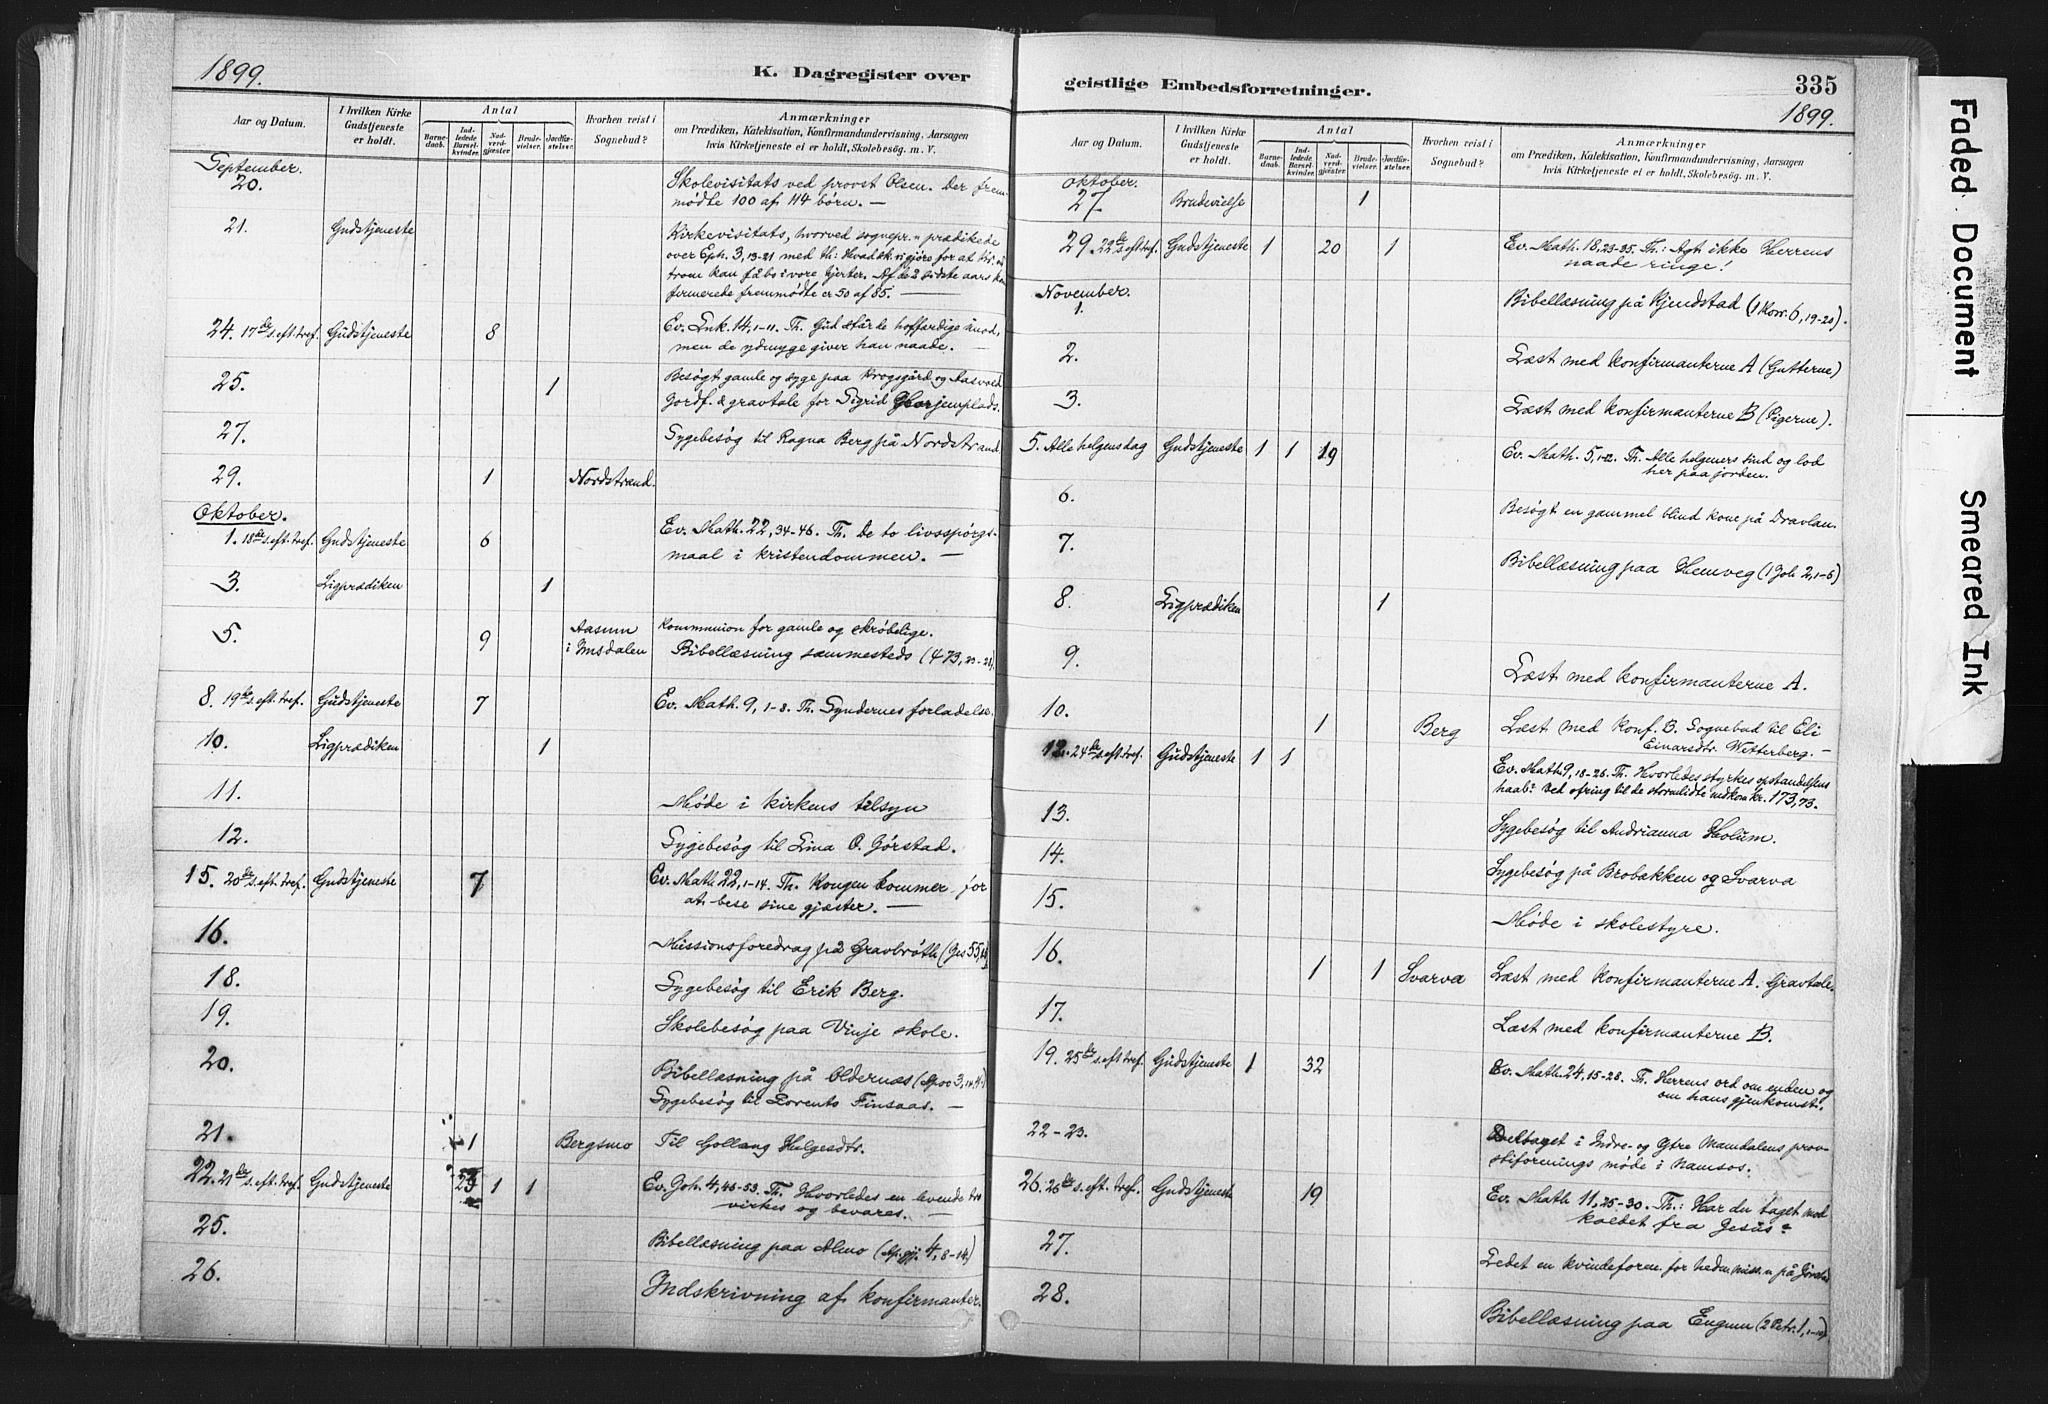 1899.
K. Dagregister over
Aar og Datum.
I hvilken Kirke Gudstjeneste er holdt.
Antal
Barne-daab.
Ind-ledede Barsel-kvinder.
Nad-verd-gjester
Brude-vielser.
Jordfæ-stelser.
Hvorhen reist i Sognebud?
Anmærkninger
om Prædiken, Katekisation, Konfirmandundervisning, Aarsagen
hvis Kirketjeneste ei er holdt, Skolebesøg. m. V.
September.
20. Skolevisitats ved provst Olsen. Der frem-
mødte 100 af 114 børn. —
21. Gudstjeneste Kirkevisitats, hvorved sognepr. prædikede
over Eph. 3,13-21 med Th: Hvad sk. vi gjøre for at
troen kan få bo i vore hjerter. Af de 2 sidste aars kon
firmerede fremmødte er 50 af 85. —
24. 17de s. eft. tref. Gudstjeneste 8 Ev. Luk. 14,1-11. Th. Gud står de hoffærdige imod,
men de ydmyge giver han naade. —
25. 1 Besøgt gamle og syge paa Krogsgård og Aasvold
Jordf. & gravtale for Sigrid
27. Sygebesøg til Ragna Berg på Nordstrand
29. 1 Nordstrand.
Oktober.
1. 18de s. eft. tref. Gudstjeneste 6 Ev. Math. 22,34-46. Th. De to livsspørgs-
maal i kristendommen. —
3. Ligprædiken 1
5. 9 Aasum Kommunion for gamle og skrøbelige.
i Imsdalen Bibellæsning sammesteds (
8. 19de s. eft. tref. Gudstjeneste 7 Ev. Math. 9, 1-8. Th. Syndernes forladelse.
10. Ligprædiken 1
11. Møde i kirkens tilsyn
12. Sygebesøg til Lina O. Gørstad.
15. 20de s. eft. tref. Gudstjeneste 7 Ev. Math 22,1-14. Th. Kongen kommer for
at bese sine gjæster. —
16. Missionsforedrag på
18. Sygebesøg til Erik Berg.
19. Skolebesøg paa Vinje skole.
20. Bibellæsning på Oldernæs
Sygebesøg til Lorents Finsaas. —
21. 1 Bergsmo Til Gollaug Helgesdtr.
22. 21de s. eft. tref. Gudstjeneste 1 1 Ev. Joh. 4,46-53. Th. Hvorledes en levende tro
virkes og bevares. —
25. Bibellæsning paa Almo (Ap. gj. 4, 8-14)
26. Indskrivning af konfirmanter.
geistlige Embedsforretninger.
335
1899.
Aar og Datum.
I hvilken Kirke Gudstjeneste er holdt.
Antal
Barne-daab.
Ind-ledede Barsel-kvinder.
Nad-verd-gjester
Brude-vielser.
Jordfæ-stelser.
Hvorhen reist i Sognebud?
Anmærkninger
om Prædiken, Katekisation, Konfirmandundervisning, Aarsagen
hvis Kirketjeneste ei er holdt, Skolebesøg. m. V.
Oktober.
27. Brudevielse 1
29. 22de s. eft. tref. Gudstjeneste 1 20 1 Ev. Math. 18,23-35. Th: Agt ikke Herrens
naade ringe!
November.
1. Bibellæsning på Kjendstad (1 Kor. 6,19-20).
2. Læst med konfirmanterne A (Gutterne)
3. Læst med konfirmanterne B (Pigerne).
5. Alle helgensdag Gudstjeneste 1 1 19 Ev. Math. 5,1-12. Th. Alle helgeners sind og lod
her paa jorden.
6. Besøgt en gammel blind kone på Dravlan.
7. Bibellæsning paa Hemveg (1 Joh 2,1-6)
8. Ligprædiken 1
9. Læst med konfirmanterne A.
10. 1 Berg Læst med konf. B. Sognebud til Eli
Einarsdtr. Wetterberg. —
12. 24de s. eft. tref. Gudstjeneste 1 1 Ev. Math. 9, 18-26. Th. Hvorledes styrkes opstandelsens
haab? Ved ofring til de stormlidte indkom kr. 173,73.
13. Sygebesøg til Andrianna Holum.
14. Sygebesøg på Brobakken og Svarva
15. Møde i skolestyre.
16. 1 1 Svarva Læst med konfirmanterne A. Gravtale.
17. Læst med konfirmanterne B.
19. 25de s. eft tref. Gudstjeneste 1 32 Ev. Math. 24,15-28. Th. Herrens ord om enden og
om hans gjenkomst.
22-23. Deltaget i Indre- og Ytre Namdalens prov-
stiforenings møde i Namsos.
26. 26de s. eft. tref. Gudstjeneste 19 Ev. Math 11, 25-30. Th.: Har du taget mod
kaldet fra Jesus?
27. Ledet en kvindeforen. for hedn. miss. på
28. Bibellæsning paa Engum (2 Petr. 1,1-10)
Faded Document
Smeared Ink